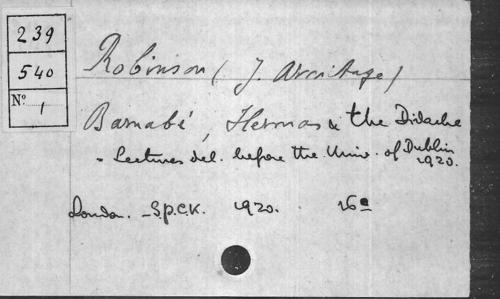 239
540
N° 1
Robinson (J. Armitage)
Barnabé, Hermas & the Didache
- Lectures del. before the Univ. of Dublin
1920.
London. - S.P.C.K. 1920. 16°